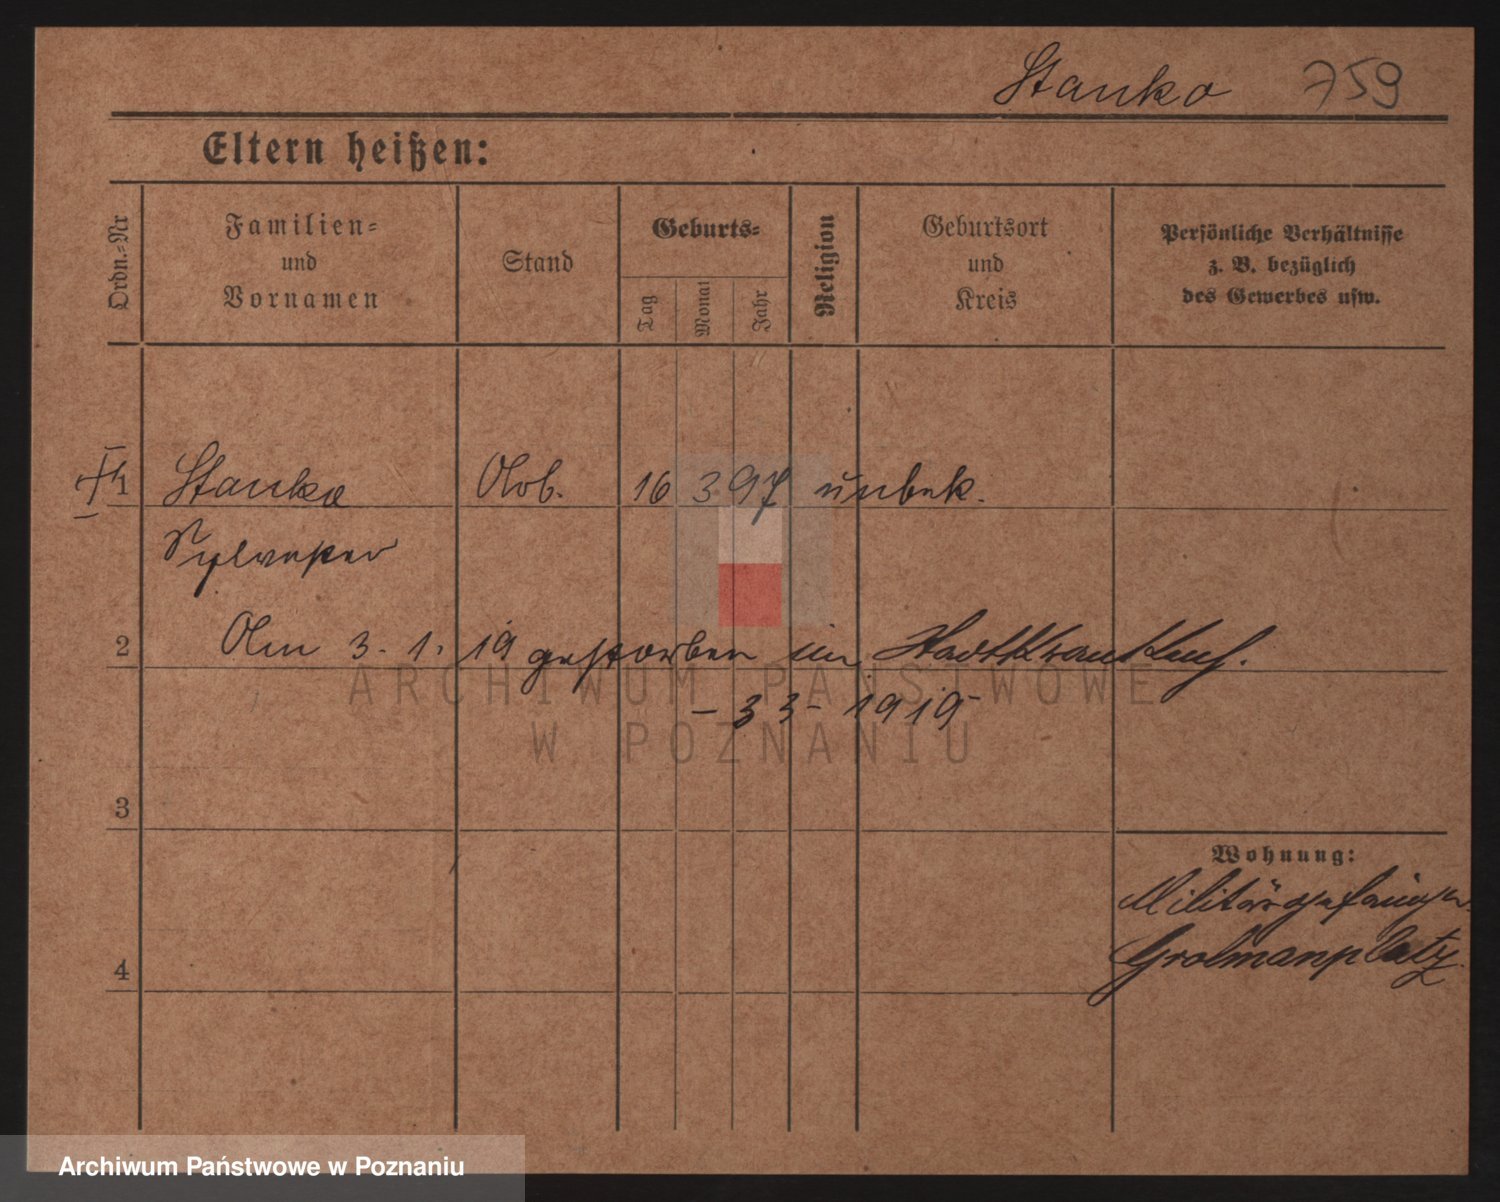 Stanko 759
Eltern heißen:
Ordn.=Nr
Familien=
und
Vornamen
Stand
Geburts=
Tag
Monat
Jahr
Religion
Geburtsort
und
Kreis
Persönliche Verhältnisse
z. B. bezüglich
des Gewerbes usw.
1 Stanko 16 3 97 unbek.
Sylvester
2 Am 3. 1. 19 gestorben im Stadtkrankenh.
- 3 3 - 1919 -
ARCHIWUM PAŃSTWOWE
W POZNANIU
3
Wohnung:
Militärgefängn.
Grolmanplatz.
4
Archiwum Państwowe w Poznaniu